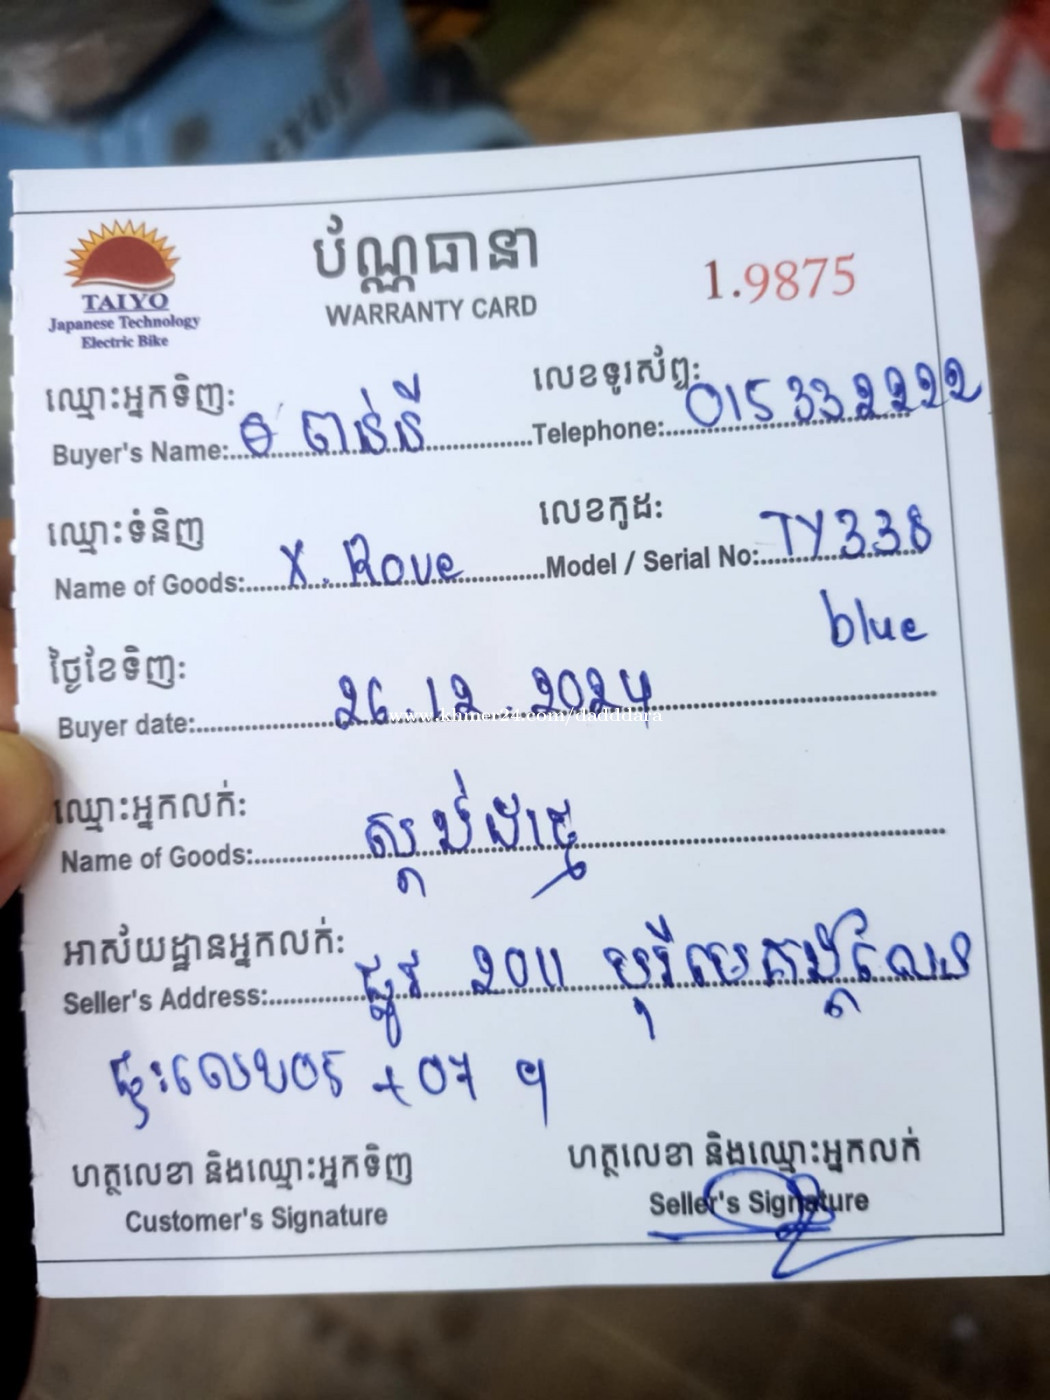 TAIYO
Japanese Technology
Electric Bike
ប័ណ្ណធានា
WARRANTY CARD
1.9875
ឈ្មោះអ្នកទិញ:
Buyer's Name:
លេខទូរស័ព្ទ:
Telephone: 015 33 2222
ឈ្មោះទំនិញ
Name of Goods: X. Rove
លេខកូដ:
Model / Serial No: TY338
blue
ថ្ងៃខែទិញ:
Buyer date: 26.12 2024
www.khmer24.com/dadddara
ឈ្មោះអ្នកលក់:
Name of Goods:
អាស័យដ្ឋានអ្នកលក់:
Seller's Address: ផ្លូវ 2011 បុរី
ផ្ទះលេខ05 + 07
ហត្ថលេខា និងឈ្មោះអ្នកទិញ
Customer's Signature
ហត្ថលេខា និងឈ្មោះអ្នកលក់
Seller's Signature